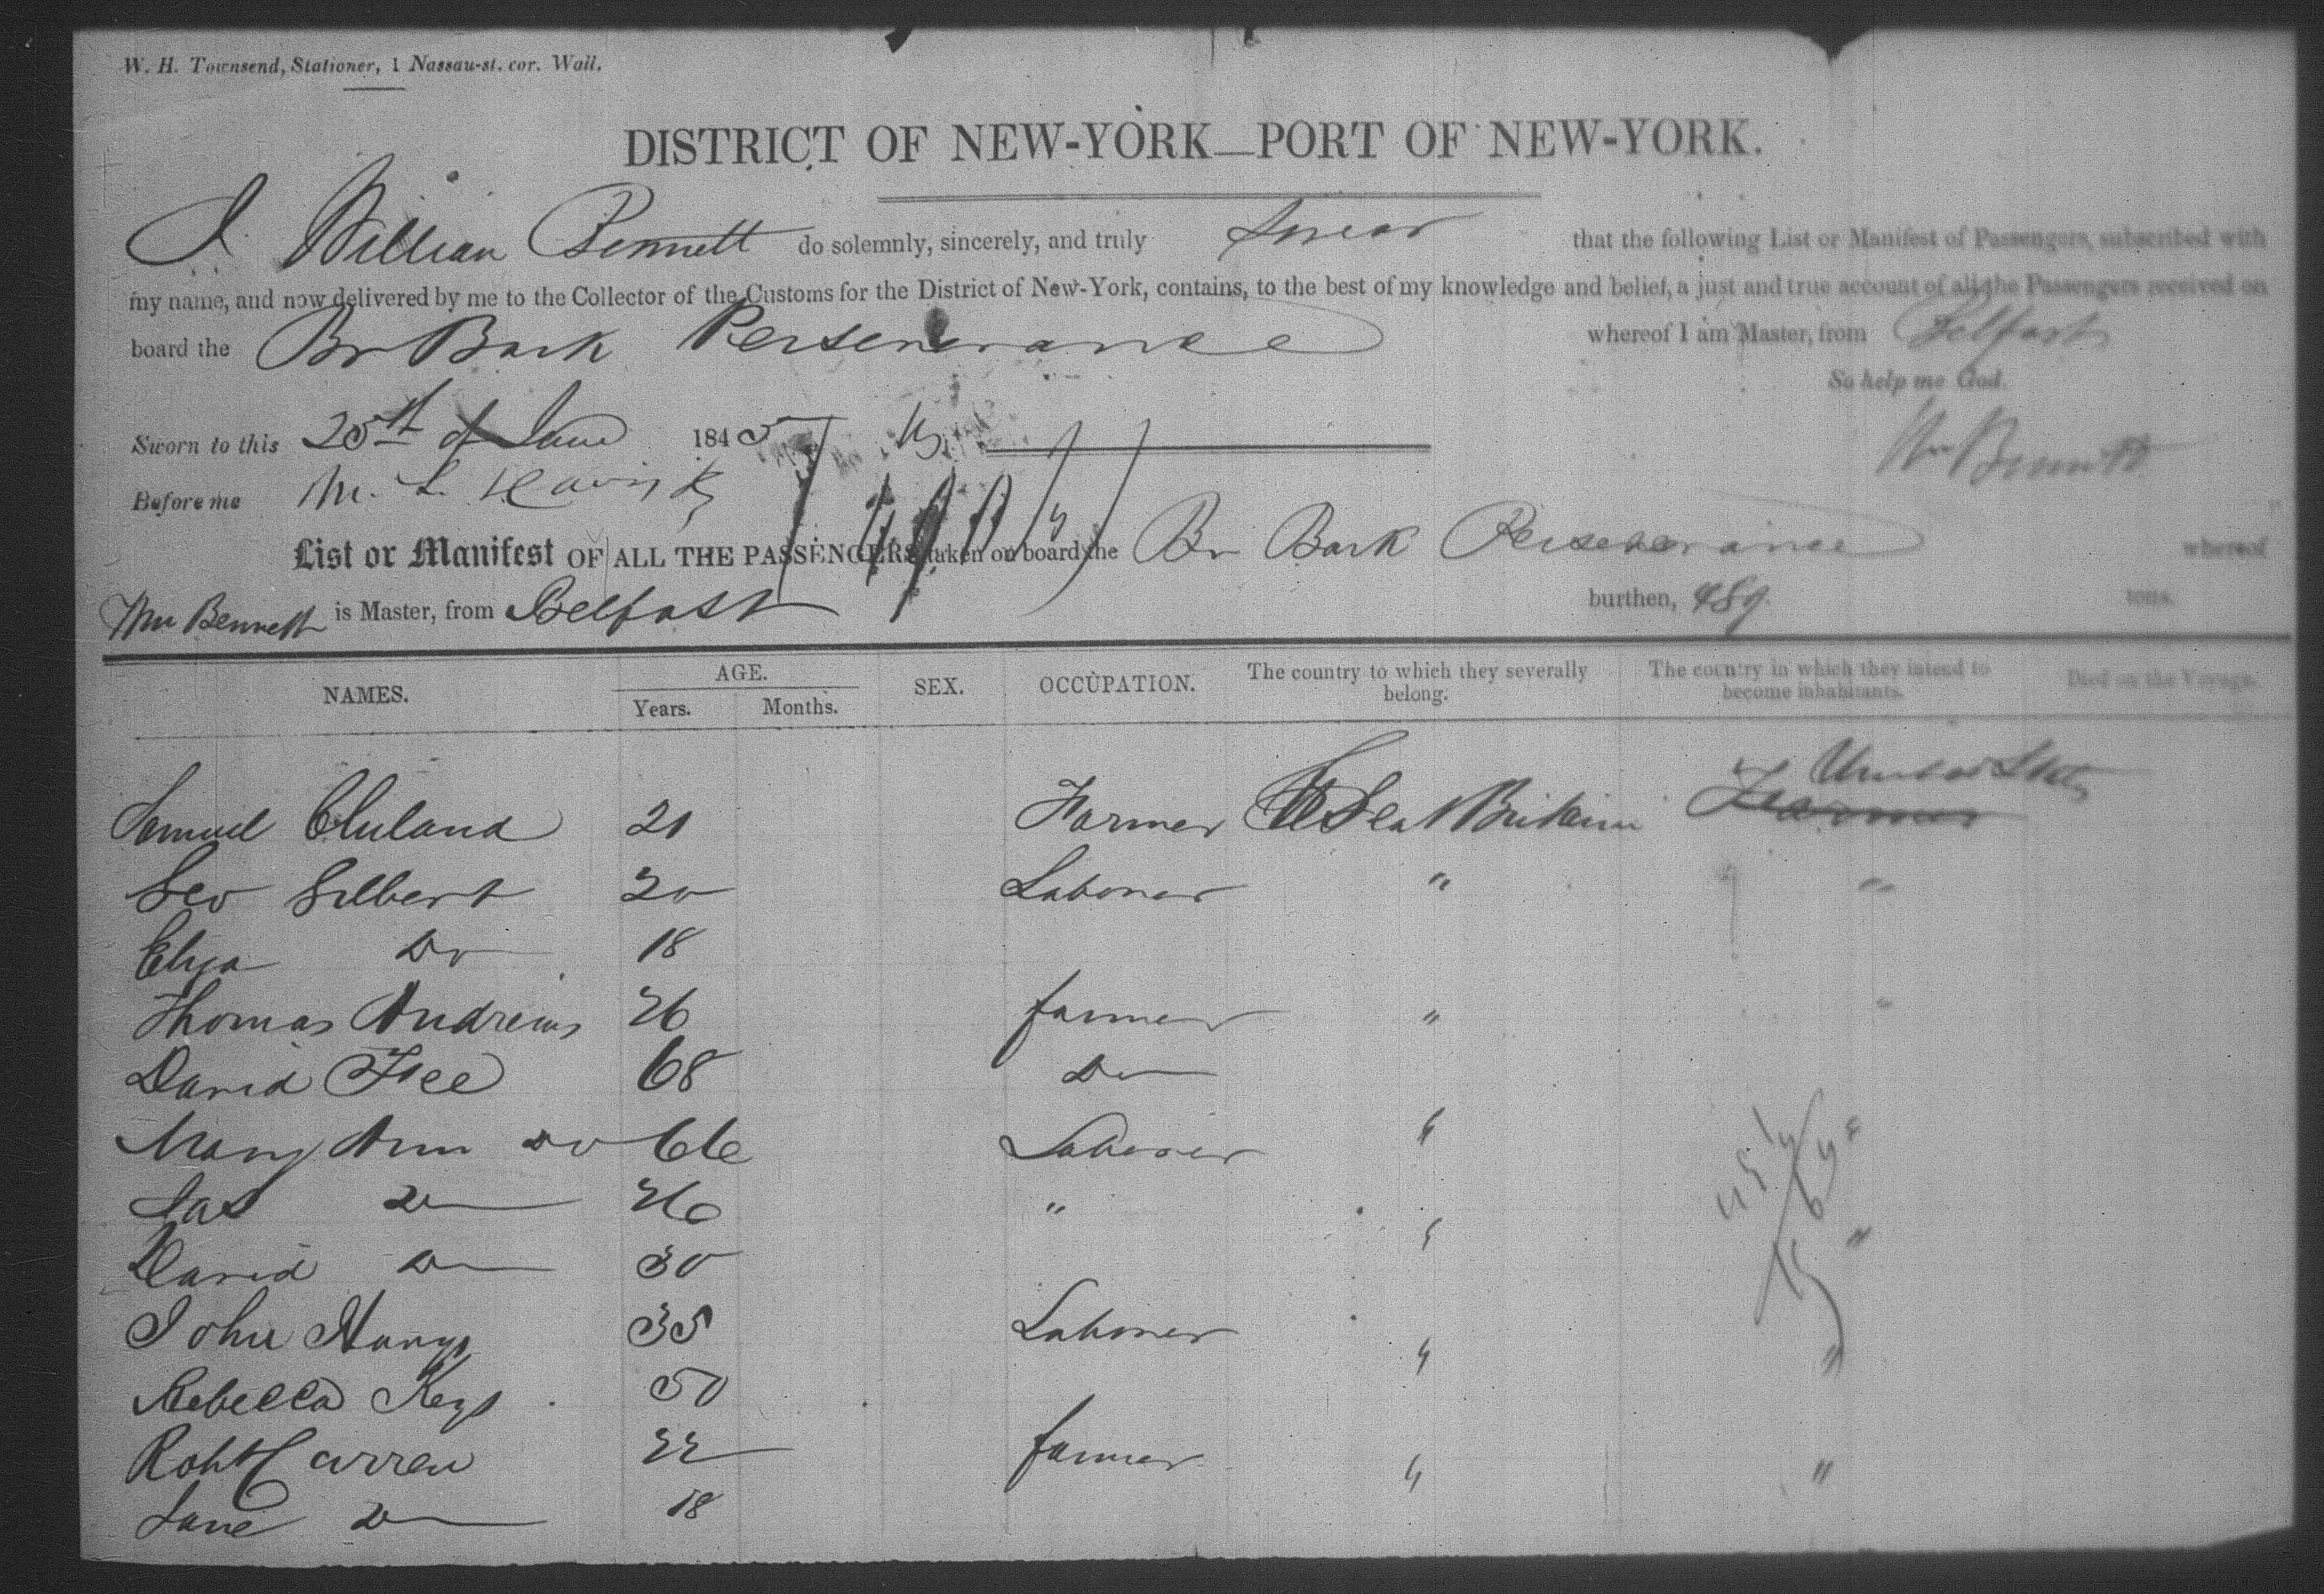 W. H. Townsend, Stationer, 1 Nassau-st. cor. Wall.
DISTRICT OF NEW-YORK—PORT OF NEW-YORK.
I William Bennett do solemnly, sincerely, and truly Swear that the following List or Manifest of Passengers, subscribed with
my name, and now delivered by me to the Collector of the Customs for the District of New-York, contains, to the best of my knowledge and belief, a just and true account of all the Passengers received on
board the Br Bark Perseverance whereof I am Master, from Belfast
So help me God.
Sworn to this 25th of June 1845
Wm Bennett
Before me M. L.
List or Manifest OF ALL THE PASSENGERS taken on board the Br Bark Perseverance whereof
Wm Bennett is Master, from Belfast burthen, 489 tons.
NAMES. AGE. Years. Months. SEX. OCCUPATION. The country to which they severally belong. The country in which they intend to become inhabitants. Died on the Voyage.
Samuel 21 Farmer Great Britain United States
Geo Gilbert 20 Laborer " "
Eliza Do 18
Thomas Andrews 26 farmer " "
David Fee 68 Do
Mary Ann Do 66 Laborer "
Jas Do 26 "
David Do 30 " "
John 35 Laborer " "
Rebecca Keys 50
Robt Curren 22 farmer " "
Jane Do 18